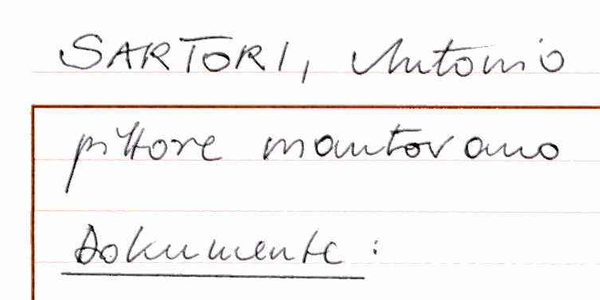 SARTORI, Antonio
pittore mantovano
Dokumente: